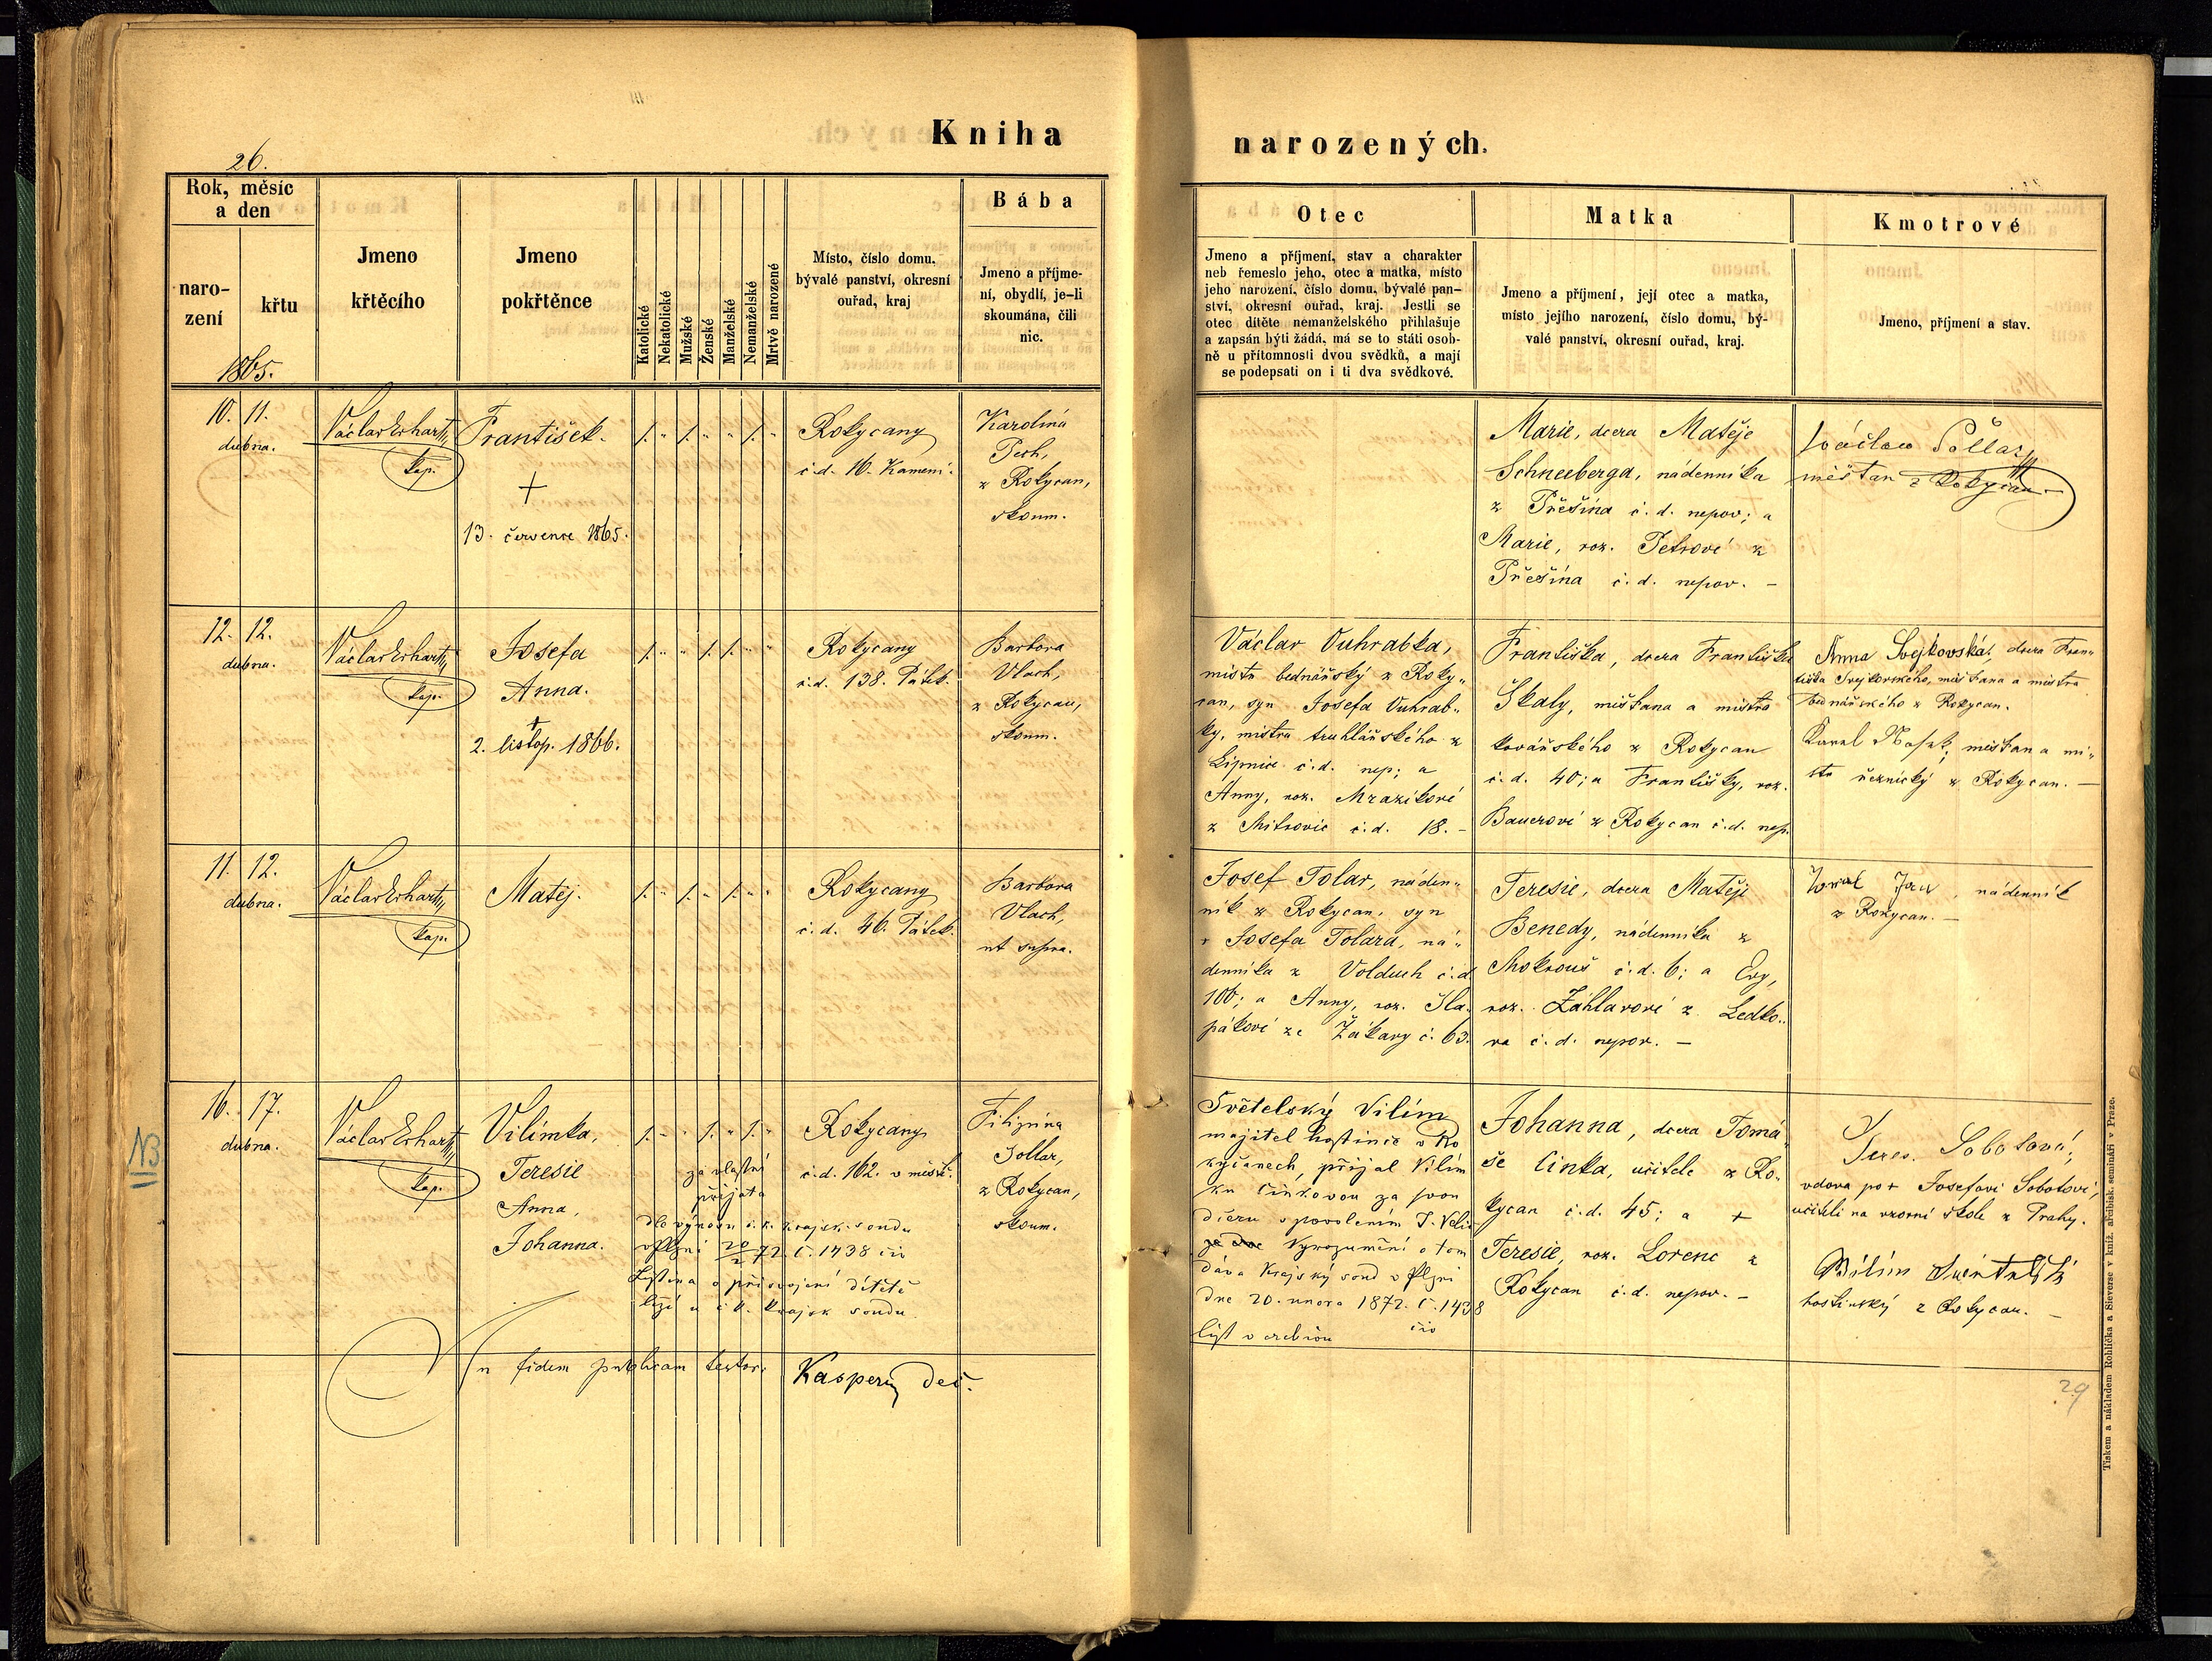 Kniha narozených.
26.
Rok, měsíc
a den
naro-
zení
křtu
1865.
Jmeno
křtěcího
Jmeno
pokřtěnce
Katolické
Nekatolické
Mužské
Ženské
Manželské
Nemanželské
Mrtvě narozené
Místo, číslo domu,
bývalé panství, okresní
ouřad, kraj
Bába
Jmeno a příjme-
ní, obydlí, je-li
skoumána, čili
nic.
Otec
Jmeno a příjmení, stav a charakter
neb řemeslo jeho, otec a matka, místo
jeho narození, číslo domu, bývalé pan-
ství, okresní ouřad, kraj. Jestli se
otec dítěte nemanželského přihlašuje
a zapsán býti žádá, má se to státi osob-
ně u přítomnosti dvou svědků, a mají
se podepsati on i ti dva svědkové.
Matka
Jmeno a příjmení, její otec a matka,
místo jejího narození, číslo domu, bý-
valé panství, okresní ouřad, kraj.
Kmotrové
Jmeno, příjmení a stav.
10. 11.
dubna.
Václav Erhart
kap.
František.
+
13. července 1865.
Rokycany
č.d. 16. Kamení.
Karolina
Pech,
z Rokycan,
skoum.
Marie, dcera Matěje
Schneeberga, nádenníka
z Příšina č.d. nepov; a
Marie, roz. Petrové z
Příšina č.d. nepov. –
Václav
měšťan z Rokycan
12. 12.
dubna.
Václav Erhart
kap.
Josefa
Anna.
+
2. listop. 1866.
Rokycany
č.d. 138. Pátek.
Barbora
Vlach,
z Rokycan,
skoum.
Václav Vuhrabka,
mistr bednářský z Roky„
can, syn Josefa Vuhrab„
ky, mistra truhlářského z
Lipnice č.d. nep; a
Anny, roz. Mrazíkové
z Mitrovic č.d. 18. –
Františka, dcera Františka
Škaly, měšťana a mistra
kovářského z Rokycan
č.d. 40; a Františky, roz.
Bauerové z Rokycan č.d. nep.
Anna Svejkovská, dcera Fran„
tiška Svejkovského, měšťana a mistra
bednářského z Rokycan.
Karel měšťan a mi„
str řeznický z Rokycan. –
11. 12.
dubna.
Václav Erhart
kap.
Matěj.
Rokycany
č.d. 46. Pátek.
Barbora
Vlach,
ut supra.
Josef Tolar, náden„
ník z Rokycan, syn
+ Josefa Tolara, ná„
denníka z Volduch č.d
106; a Anny, roz. Šla„
pákové ze Žákavy č. 63.
Teresie, dcera Matěje
Benedy, nádenníka z
Mokrouš č.d. 6; a Evy,
roz. Záhlavové z Ledko„
va č.d. nepov. –
Jan, nádenník
z Rokycan. –
NB
16. 17.
dubna.
Václav Erhart
kap.
Vilímka,
Teresie
Anna,
Johanna.
za vlastní
přijata
dle výnosu c.k. krajsk. soudu
v Plzni 20/2 72. č. 1438 čís
Listina o přisvojení dítěte
leží u c.k. krajsk soudu.
Rokycany
č.d. 162. v městě.
Filipína
Sollar,
z Rokycan,
skoum.
Světelský Vilím
majitel hostince v Ro
kycanech, přijal Vilím
ku Cinkovou za svou
dceru s povolením
Vyrozumění o tom
dává Krajský soud v Plzni
dne 20. února 1872. č. 1438
čís
Johanna, dcera Tomá„
še Cinka, učitele z Ro„
kycan č.d. 45; a +
Teresie, roz. Lorenc z
Rokycan č.d. nepov. –
Teres. Sobotová,
vdova po + Josefovi Sobotovi,
učiteli na vzorní škole z Prahy.
Vilím Světelský
hostinský z Rokycan. –
In fidem publicam testor: Kasperu děk.
29
Tiskem a nákladem Rohlíčka a Sieverse v kníž. arcibisk. semináři v Praze.